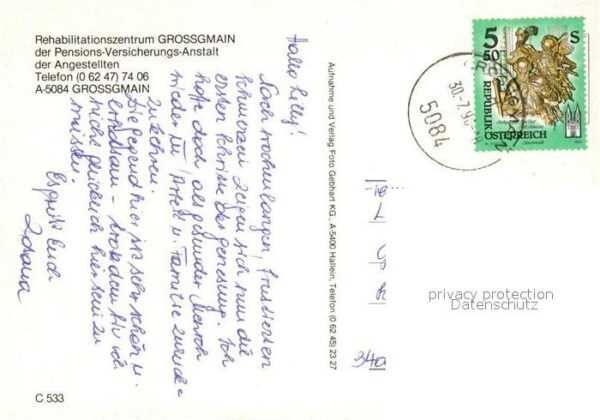 Rehabilitationszentrum GROSSGMAIN
der Pensions-Versicherungs-Anstalt
der Angestellten
Telefon (0 62 47) 74 06
A-5084 GROSSGMAIN
Hallo Lilly!
Nach wochenlangen, frustierten
Schmerzen zeigen sich nun die
ersten Schritte der Genesung. Ich
hoffe doch als gesunder Mensch
wieder in Arbeit u. Familie zurück=
zukehren.
Die Gegend hier ist sehr schön u.
erholsam - trotzdem bin ich
nicht glücklich hier sein zu
müssen.
Es grüßt Euch
Aufnahme und Verlag Foto Gebhart KG., A-5400 Hallein, Telefon (0 62 45) 23 27
5 50 S
REPUBLIK
ÖSTERREICH
30.-7.9
5084
privacy protection
Datenschutz
340
C 533